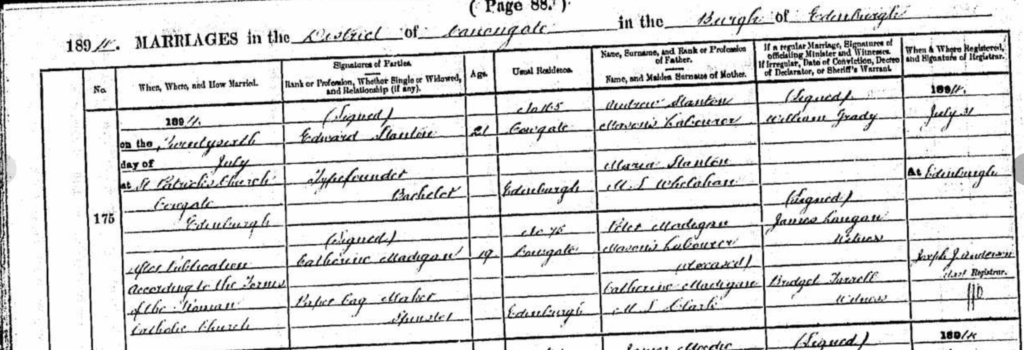 ( Page 88. )
1894. MARRIAGES in the District of Canongate in the Burgh of Edinburgh
No.
When, Where, and How Married.
Signatures of Parties.
Rank or Profession, Whether Single or Widowed, and Relationship (if any).
Age.
Usual Residence.
Name, Surname, and Rank or Profession of Father.
Name, and Maiden Surname of Mother.
If a regular Marriage, Signatures of officiating Minister and Witnesses.
If Irregular, Date of Conviction, Decree of Declarator, or Sheriff's Warrant.
When & Where Registered, and Signature of Registrar.
175
1894.
on the Twentysixth
day of July
at St Patrick's Church
Cowgate
Edinburgh
After Publication
According to the Forms
of the Roman
Catholic Church
(Signed)
Edward Stanton
Typefounder
Bachelor
(Signed)
Catherine Madigan
Paper Bag Maker
Spinster
21
19
No 165
Cowgate
Edinburgh
No
Cowgate
Edinburgh
Andrew Stanton
Mason's Labourer
Maria Stanton
M.S. Whelahan
Peter Madigan
Mason's Labourer
(deceased)
Catherine Madigan
M.S. Clark
(Signed)
William Grady
(Signed)
James Langan
Witness
Bridget Farrell
Witness
1894.
July 31
At Edinburgh
Joseph J. Anderson
Asst Registrar.
(Signed)
1894